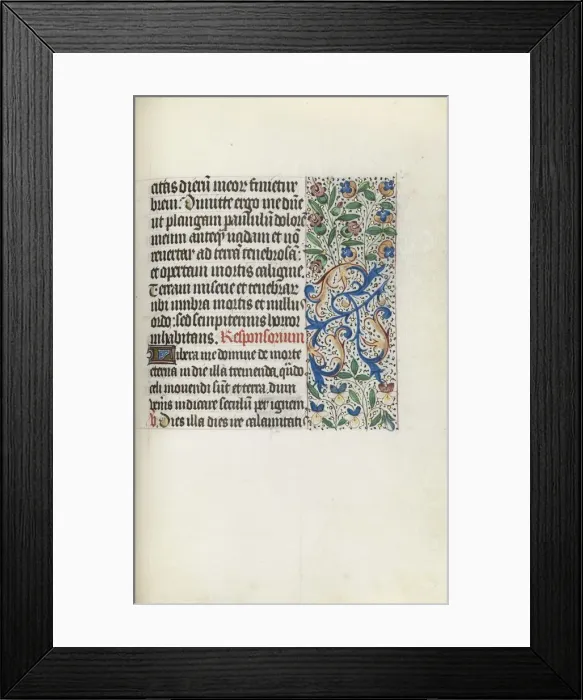 citas dierū meoꝝ finietur
breui: Dimitte ergo me dn̄e
ut plangam paululū dolorē
meum anteqͣ̄ uadam et nō
reuertar ad terrā tenebrosā:
et opertam mortis caligine
Terram miserie et tenebraꝝ
ubi umbra mortis et nullus
ordo: sed sempiternus horror
inhabitans. Responsorium
Libera me domine de morte
eterna in die illa tremenda, qn̄do
celi mouendi sūt et terra, dum
ueneris iudicare seculū per ignem
v. Dies illa dies ire calamitatis